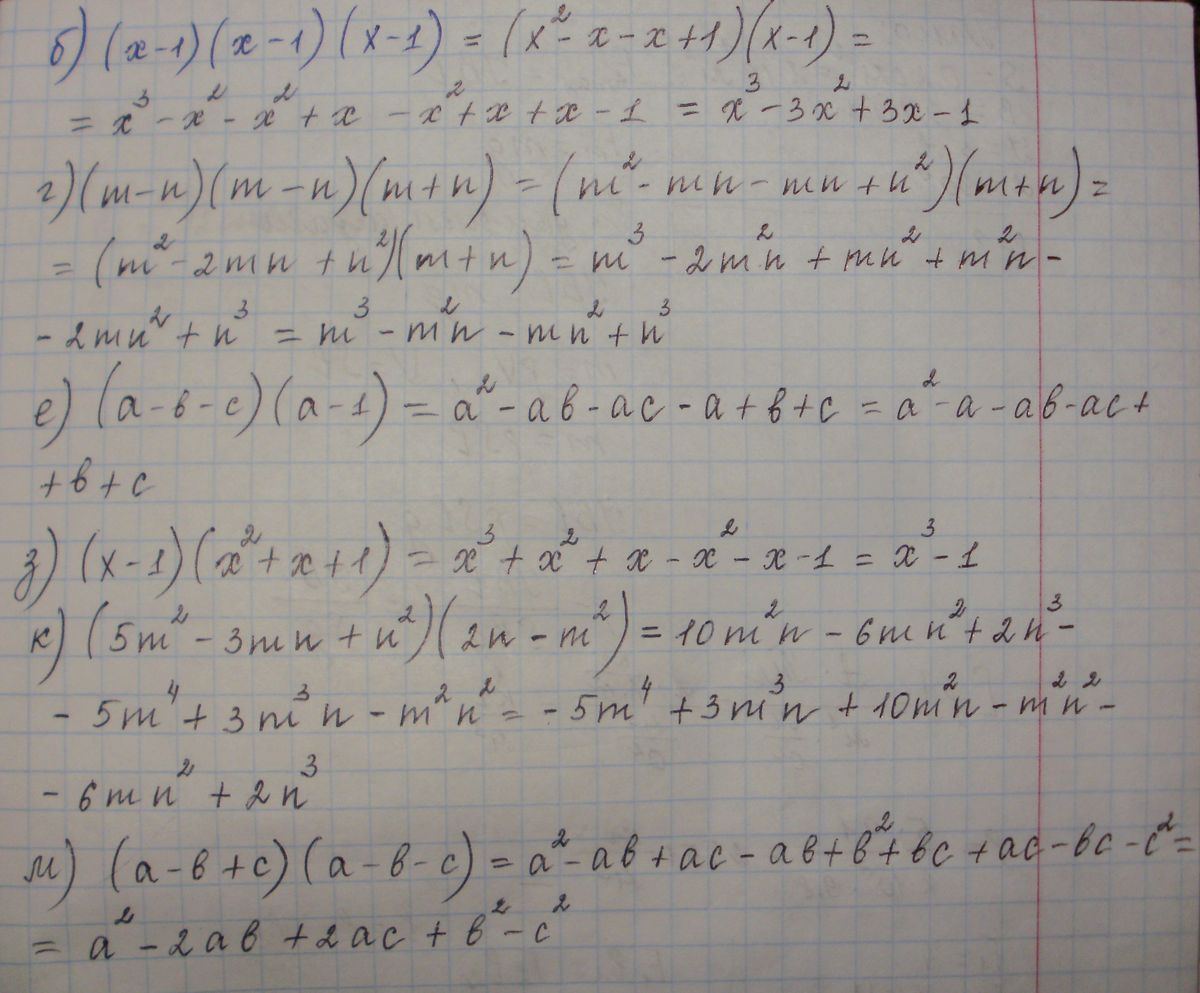 б) (x-1)(x-1)(x-1) = (x² - x - x + 1)(x-1) =
= x³ - x² - x² + x - x² + x + x - 1 = x³ - 3x² + 3x - 1
г) (m-n)(m-n)(m+n) = (m² - mn - mn + n²)(m+n) =
= (m² - 2mn + n²)(m+n) = m³ - 2m²n + mn² + m²n -
- 2mn² + n³ = m³ - m²n - mn² + n³
е) (a-в-c)(a-1) = a² - aв - ac - a + в + c = a² - a - aв - ac +
+ в + c
з) (x-1)(x² + x + 1) = x³ + x² + x - x² - x - 1 = x³ - 1
к) (5m² - 3mn + n²)(2n - m²) = 10m²n - 6mn² + 2n³ -
- 5m⁴ + 3m³n - m²n² = -5m⁴ + 3m³n + 10m²n - m²n² -
- 6mn² + 2n³
м) (a-в+c)(a-в-c) = a² - aв + ac - aв + в² + вc + ac - вc - c² =
= a² - 2aв + 2ac + в² - c²